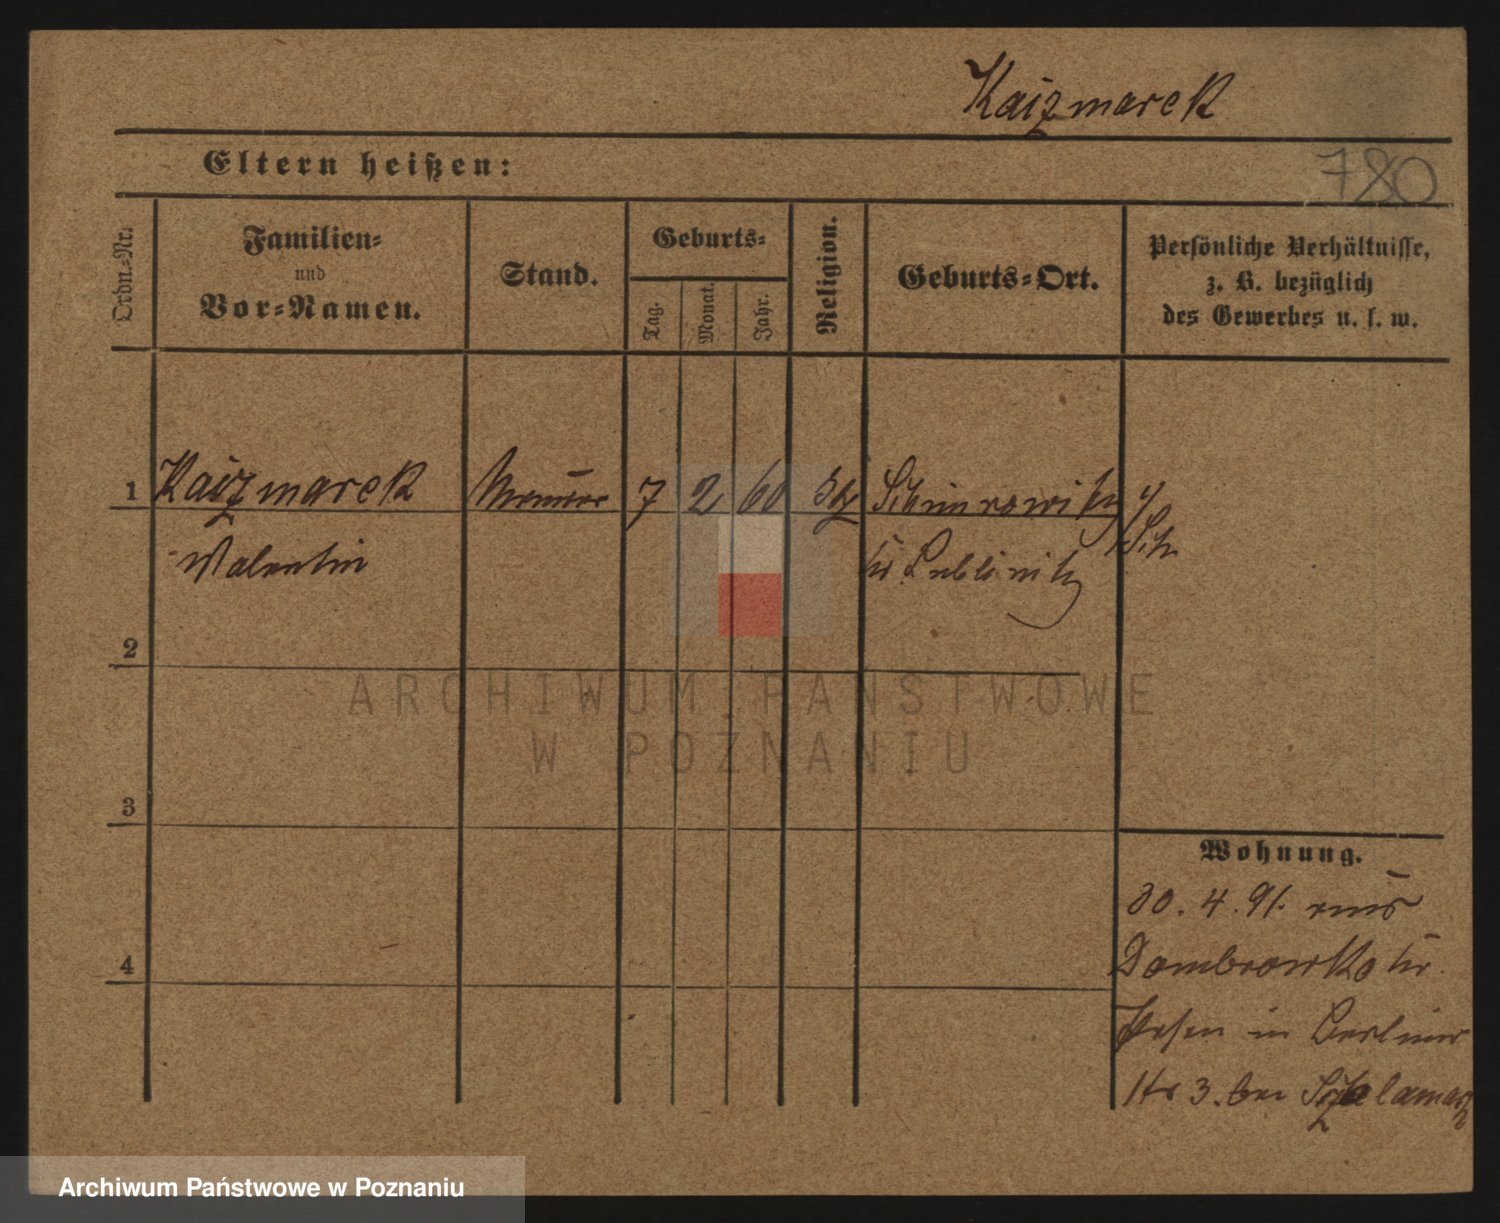 Kaczmarek
Eltern heißen:
780
Ordn.-Nr.
Familien-
und
Vor-Namen.
Stand.
Geburts-
Tag.
Monat.
Jahr.
Religion.
Geburts-Ort.
Persönliche Verhältnisse,
z. B. bezüglich
des Gewerbes u. s. w.
1 Kaczmarek Maurer 7 2 60
Valentin Kr. Lublinitz
2
3
4
Wohnung.
30. 4. 91. aus
Dombrowka Kr.
Posen in Berliner
Str 3. bei
ARCHIWUM PAŃSTWOWE
W POZNANIU
Archiwum Państwowe w Poznaniu